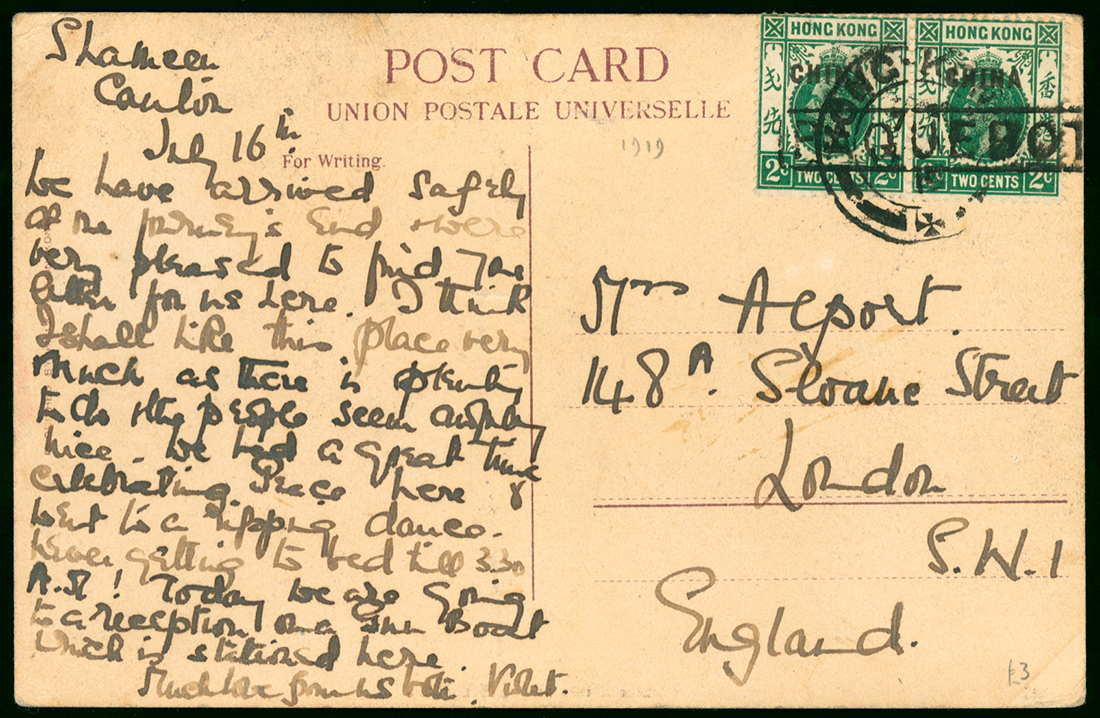 Shameen
Canton
July 16th
POST CARD
UNION POSTALE UNIVERSELLE
For Writing.
1919
We have arrived safely
at the journey's End & were
very pleased to find
letter for us here. I think
I shall like this place very
Much as there is plenty
to do & the people seem awfully
nice. We had a great time
celebrating Peace here &
went to a ripping dance.
never getting to bed till 3.30
A.M! Today we are going
to a reception on a Gun Boat
which is stationed here
Much love from us both. Violet.
HONG KONG
CHINA
香
貳先
2c TWO CENTS 2c
HONG KONG
CHINA
香
TWO CENTS 2c
HONG-K
QUEBOT
Mrs Alport.
148A. Sloane Street
London
S.W.1
England.
£3